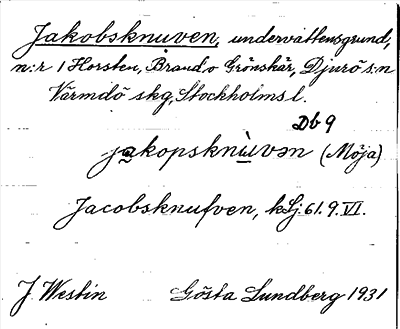 Jakobsknuven, undervattensgrund,
n:r / Horsten, Brand o Grönskär, Djurö s:n
Värmdö skg, Stockholms l.
Db 9
jakopsknùvən (Möja)
Jacobsknufven, kSj 61. 9. VI.
J Westin Gösta Lundberg 1931